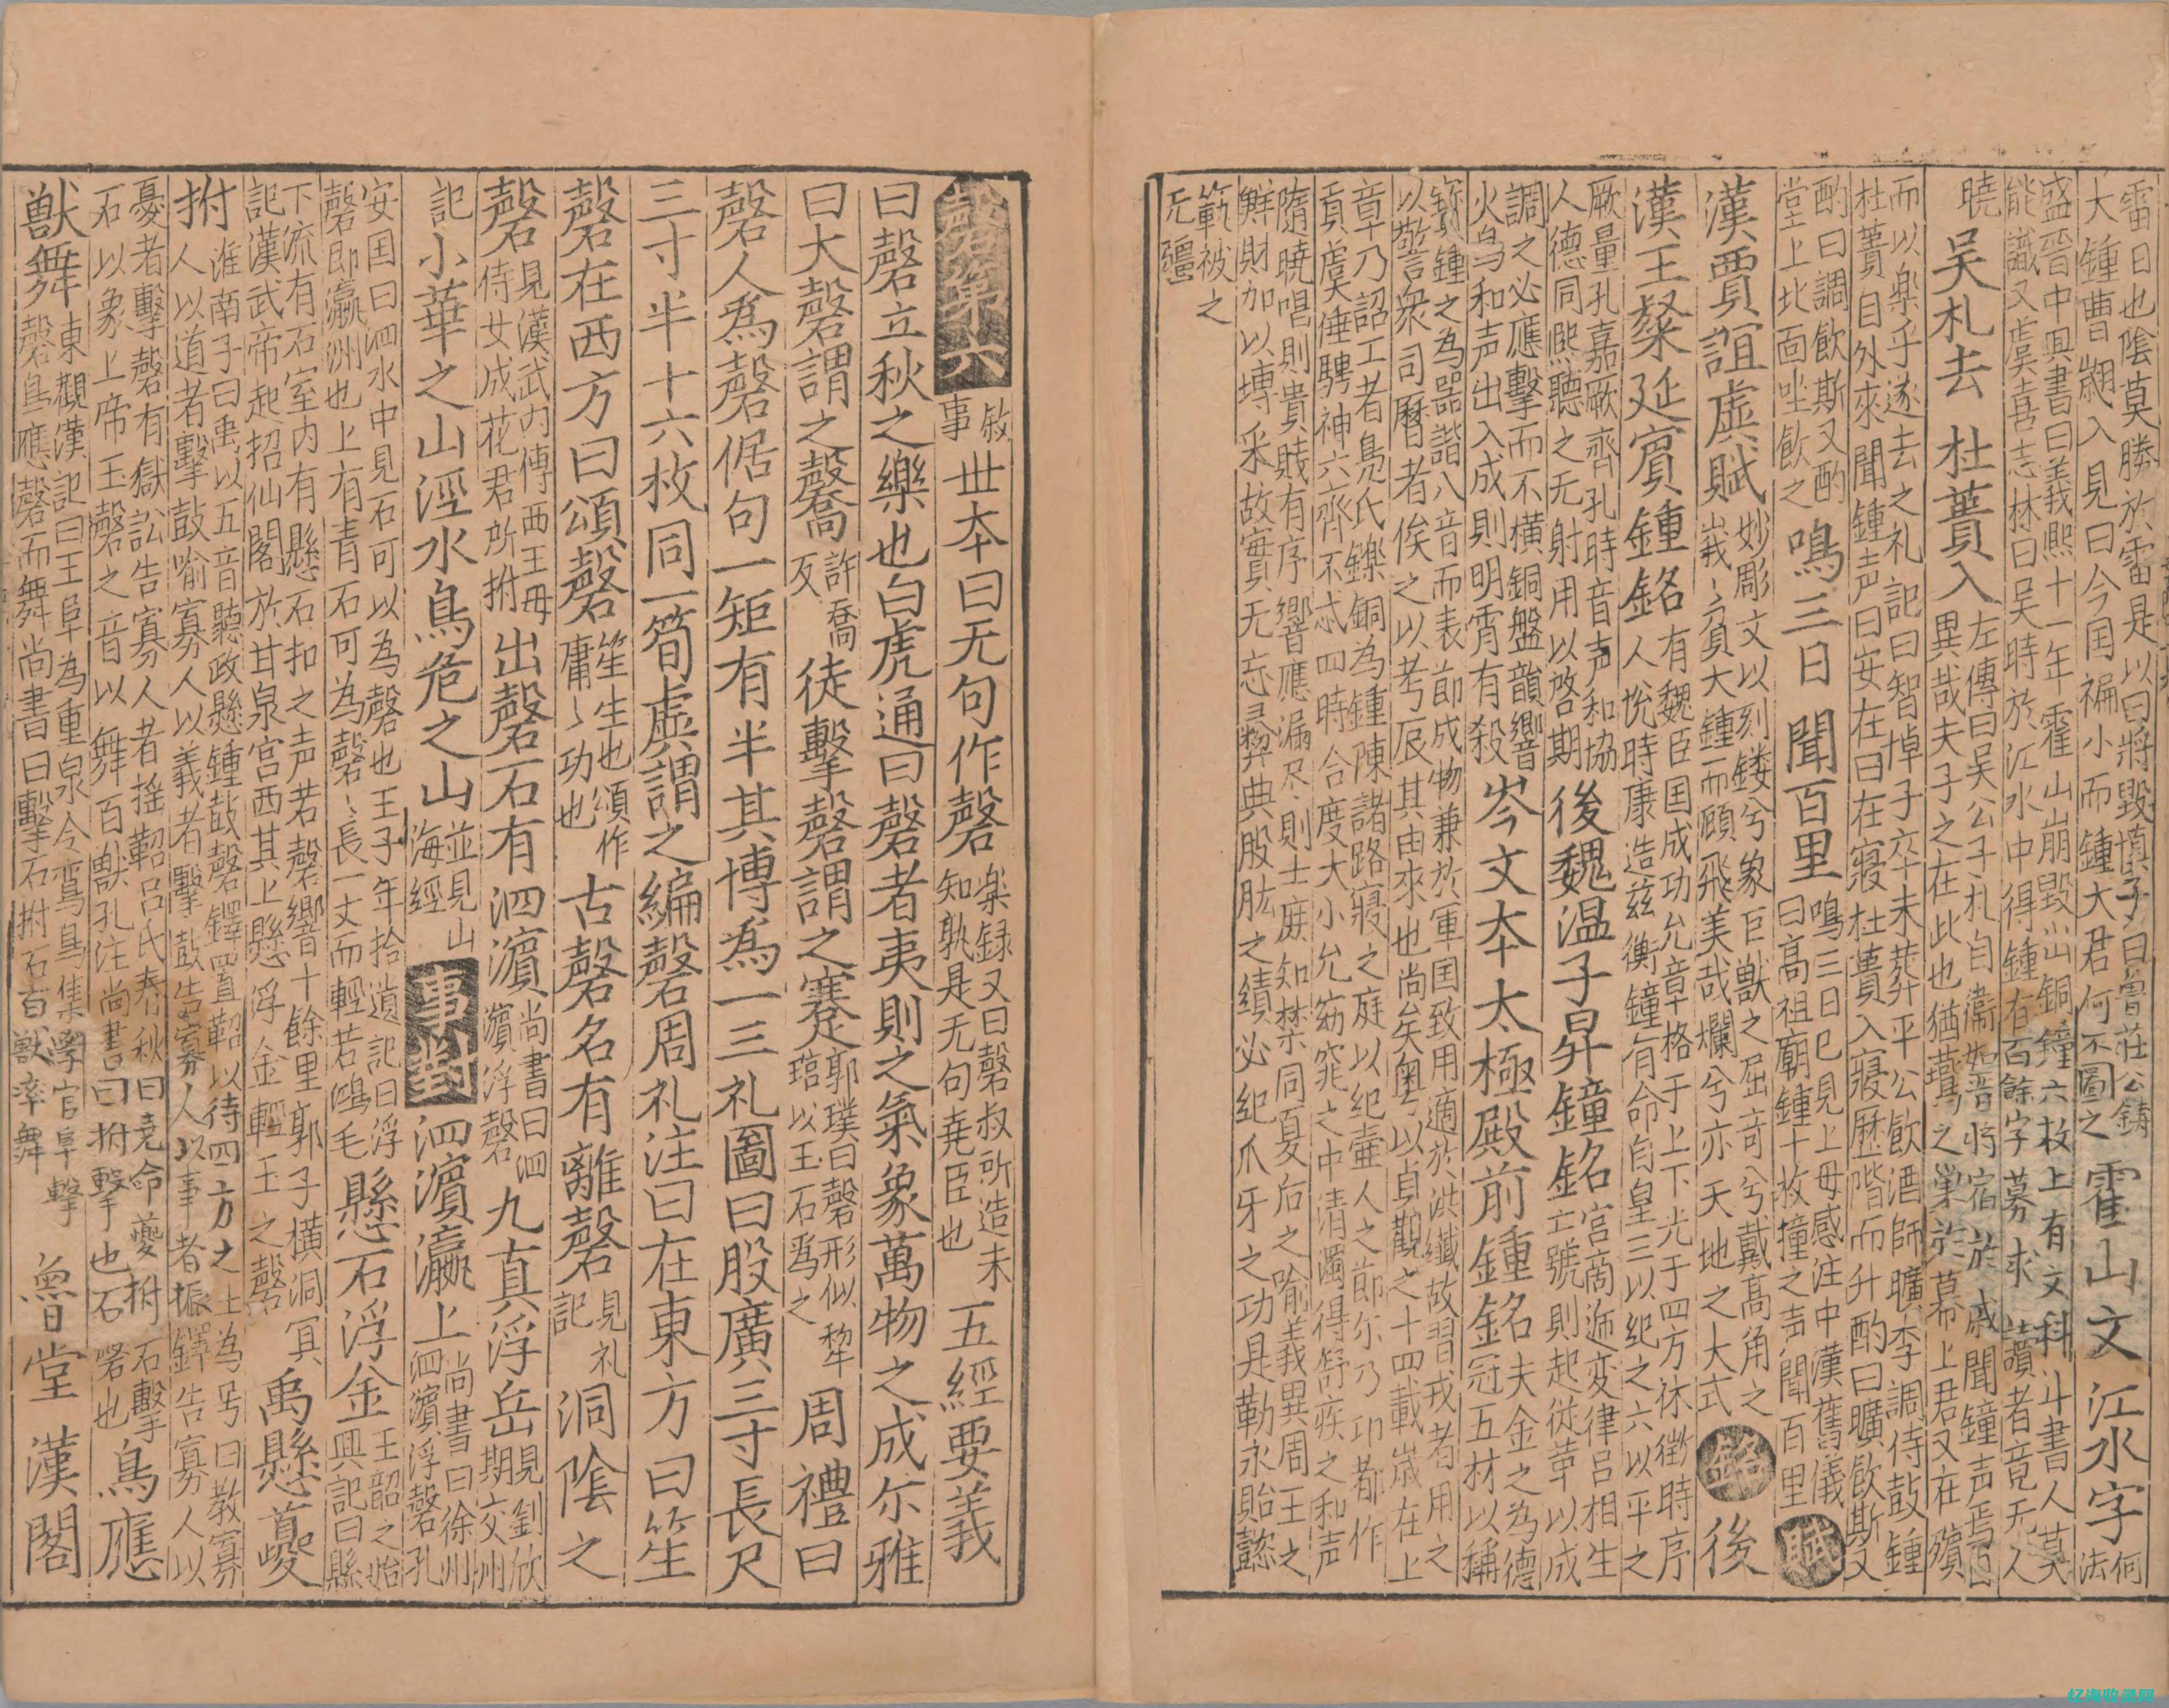 雷日也陰莫勝於雷是以曰將毀慎子曰魯莊公鑄
大鍾曹翽入見曰今囯褊小而鍾大君何不圖之 霍山文 江水字 何法
盛晋中興書曰義熙十一年霍山崩毀山銅鐘六枚上有文科斗書人莫
能識又虞喜志林曰吴時於江水中得鍾有百餘字募求讀者竟无人
曉 吴札去 杜蕢入 左傳曰吴公子札自衛如晋將宿於戚聞鐘声焉曰
異哉夫子之在此也猶鷰之巢於幕上君又在殯
而以樂乎遂去之礼記曰智悼子卒未葬平公飲酒師曠李調侍鼓鍾
杜蕢自外來聞鍾声曰安在曰在寢杜蕢入寢歷階而升酌曰曠飲斯又
酌曰調飲斯又酌
堂上北面坐飲之 鳴三日 聞百里 鳴三日已見上毋感注中漢舊儀
曰高祖廟鍾十枚撞之声聞百里 賦
漢賈誼虚賦 妙彫文以刻鏤兮象巨獸之屈竒兮戴髙角之
峩〻負大鍾而顧飛美哉爛兮亦天地之大式 銘 後
漢王粲延賓鍾銘 有魏臣囯成功允章格于上下光于四方休徵時序
人恱時康造兹衡鐘有命自皇三以紀之六以平之
厥量孔嘉厥齊孔時音声和協
人德同熙聽之无射用以啓期 後魏温子昇鐘銘 宫啇遞变律吕相生
立號則起從革以成
調之必應擊而不横銅盤韻響
火鸟和声出入成則明霄有殺 岑文夲太極殿前鍾銘 夫金之為德
冠五材以稱
寳鍾之為噐諧八音而表節成物兼於軍囯致用適於洪纖故習戎者用之
以警衆司曆者俟之以考辰其由來也尚矣奥以貞觀之十四載歳在上
章乃詔工者鳧氏鑠銅為鍾陳諸路寢之庭以紀壷人之節尔乃邛都作
貢虞倕騁神六齊不忒四時合度大小允窈窕之中清濁得舒疾之和声
隋曉唱則貴賎有序響應漏尽則士庶知禁同夏后之喻義異周王之
鮮財加以塼采故寘无忘彛典股肱之績必紀爪牙之功具勒永貽懿
範被之
无疆
磬第六 敘事 丗夲曰无句作磬 楽録又曰磬叔所造未
知孰是无句堯臣也 五經要義
曰磬立秋之樂也白虎通曰磬者夷則之氣象萬物之成尓雅
曰大磬謂之毊 許喬反 徒擊磬謂之寋 郭璞曰磬形似犂
琯以玉石爲之 周禮曰
磬人爲磬倨句一矩有半其博爲一三礼圖曰股廣三寸長尺
三寸半十六枚同一筍虚謂之編磬周礼注曰在東方曰笙
磬在西方曰頌磬 笙生也頌作
庸〻功也 古磬名有離磬 見礼記 洞陰之
磬 見漢武内傳西王母
侍女成花君所拊 出磬石有泗濵 尚書曰泗
濵浮磬 九真浮岳 見劉欣
期交州
記 小華之山涇水鳥危之山 並見山
海經 事對 泗濵瀛上 尚書曰徐州
泗濵浮磬孔
安囯曰泗水中見石可以為磬也王子年拾遺記曰浮
磬即瀛洲也上有青石可為磬〻長一丈而輕若鴻毛 懸石浮金 王韶之始
興記曰縣
下流有石室内有懸石扣之声若磬響十餘里郭子横洞冥
記漢武帝起招仙閣於甘泉宫西其上懸浮金輕玉之磬 禹懸夔
拊 淮南子曰禹以五音聽政懸鍾鼓磬鐸置鞀以待四方之士為号曰教寡
人以道者擊鼓喻寡人以義者擊鼓告寡人以事者振鐸告寡人以
憂者擊磬有獄訟告寡人者摇鞀吕氏春秋曰堯命夔拊石擊
石以象上帝玉磬之音以舞百獸孔注尚書曰拊擊也石磬也 鳥應
獸舞 東觀漢記曰王阜為重泉令鸞鳥集學官阜擊
磬鳥應磬而舞尚書曰擊石拊石百獸率舞 魯堂 漢閣
忆海收录网